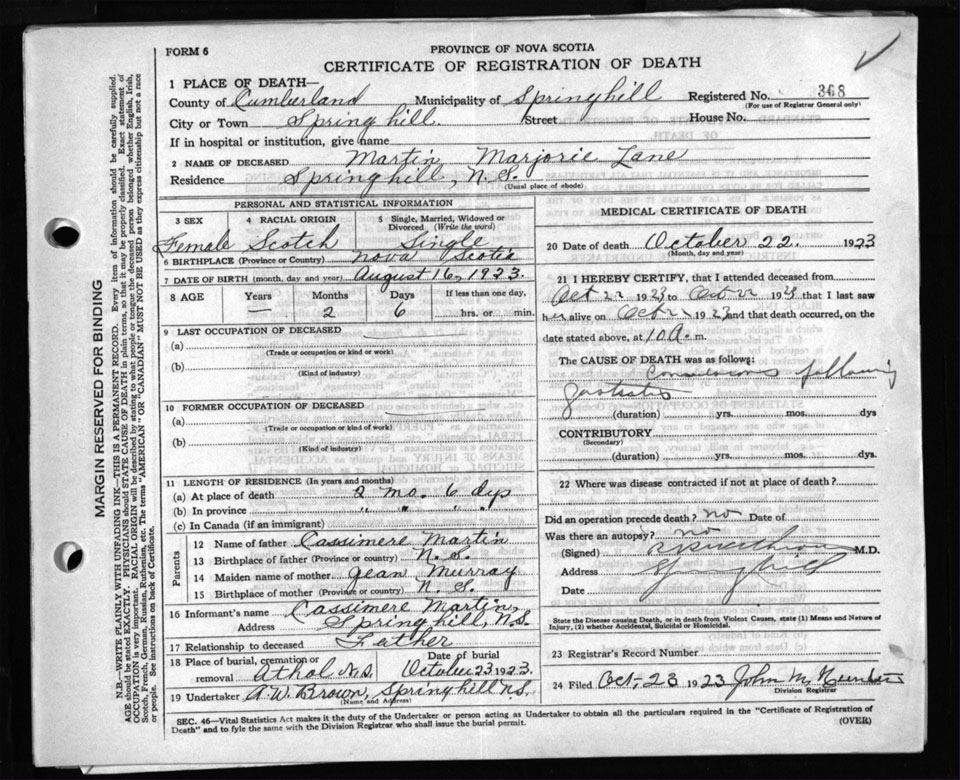 FORM 6
PROVINCE OF NOVA SCOTIA
CERTIFICATE OF REGISTRATION OF DEATH
1 PLACE OF DEATH—
County of Cumberland Municipality of Springhill Registered No. 368
(For use of Registrar General only)
City or Town Spring hill. Street House No.
If in hospital or institution, give name
2 NAME OF DECEASED Martin, Marjorie Jane
Residence Springhill, N.S.
(Usual place of abode)
PERSONAL AND STATISTICAL INFORMATION
3 SEX 4 RACIAL ORIGIN 5 Single, Married, Widowed or Divorced (Write the word)
Female Scotch Single
6 BIRTHPLACE (Province or Country) Nova Scotia
7 DATE OF BIRTH (month, day and year) August 16, 1923.
8 AGE Years Months Days If less than one day,
— 2 6 hrs. or min.
9 LAST OCCUPATION OF DECEASED
(a)
(Trade or occupation or kind or work)
(b)
(Kind of industry)
10 FORMER OCCUPATION OF DECEASED
(a)
(Trade or occupation or kind of work)
(b)
(Kind of industry)
11 LENGTH OF RESIDENCE (In years and months)
(a) At place of death 2 mo. 6 dys
(b) In province " " " "
(c) In Canada (if an immigrant)
Parents
12 Name of father Cassimere Martin
13 Birthplace of father (Province or country) N.S.
14 Maiden name of mother Jean Murray
15 Birthplace of mother (Province or country) N.S.
16 Informant's name Cassimere Martin,
Address Springhill, N.S.
17 Relationship to deceased Father
18 Place of burial, cremation or removal Athol N.S. Date of burial October 23 1923.
19 Undertaker A.W. Brown, Springhill N.S.
(Name and Address)
MEDICAL CERTIFICATE OF DEATH
20 Date of death October 22. 1923
(Month, day and year)
21 I HEREBY CERTIFY, that I attended deceased from
Oct 22 1923 to Oct 22 1923 that I last saw
her alive on Oct 1923 and that death occurred, on
date stated above, at 10 A. m.
The CAUSE OF DEATH was as follows:
Convulsions following
gastritis
(duration) yrs. mos. dys
CONTRIBUTORY
(Secondary)
(duration) yrs. mos. dys.
22 Where was disease contracted if not at place of death?
Did an operation precede death? no Date of
Was there an autopsy? no
(Signed) M.D.
Address Springhill
Date
State the Disease causing Death, or in death from Violent Causes, state (1) Means and Nature of
Injury, (2) whether Accidental, Suicidal or Homicidal.
23 Registrar's Record Number
24 Filed Oct, 23 1923 John M
Division Registrar
SEC. 46—Vital Statistics Act makes it the duty of the Undertaker or person acting as Undertaker to obtain all the particulars required in the "Certificate of Registration of
Death" and to fyle the same with the Division Registrar who shall issue the burial permit. (OVER)
MARGIN RESERVED FOR BINDING
N.B.—WRITE PLAINLY WITH UNFADING INK—THIS IS A PERMANENT RECORD. Every item of information should be carefully supplied.
AGE should be stated EXACTLY. PHYSICIANS should STATE CAUSE OF DEATH in plain terms, so that it may be properly classified. Exact statement of
OCCUPATION is very important. RACIAL ORIGIN will be described by stating to what people or tongue the deceased person belonged whether English, Irish,
Scotch, French, German, Russian, Ruthenian, etc. The terms "AMERICAN" OR "CANADIAN" MUST NOT BE USED as they express citizenship but not a race
or people. See instructions on back of Certificate.